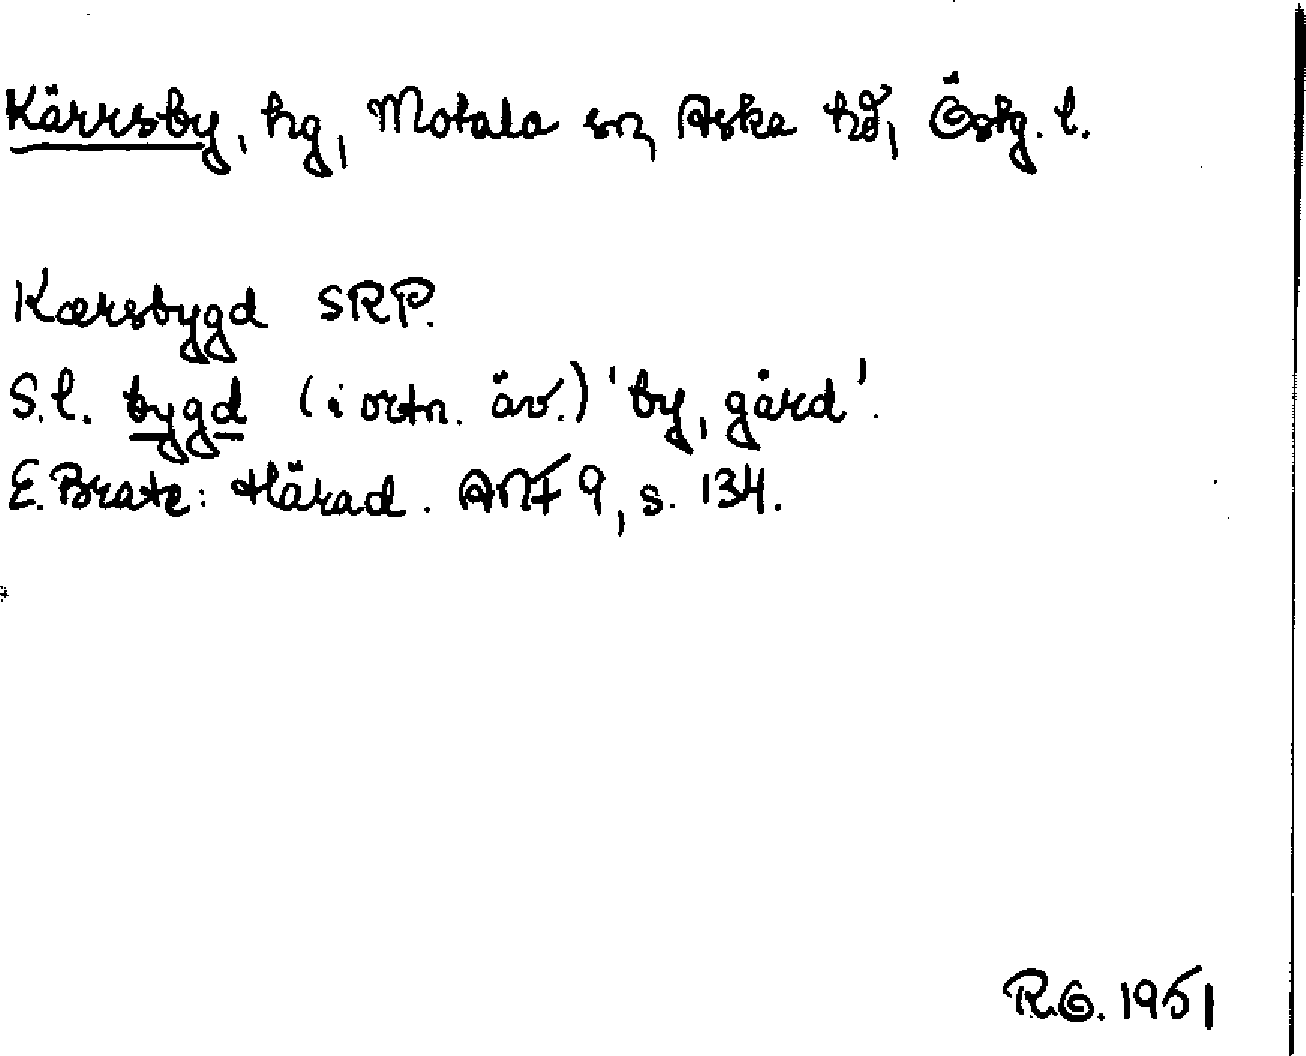 Kärrsby, hg, Motala sn, Aska hd, Östg. l.
Kærsbygd SRP.
S.l. bygd (i ortn. äv.) 'by, gård'.
E. Brate: Härad. ANF 9, s. 134.
R.G. 1951